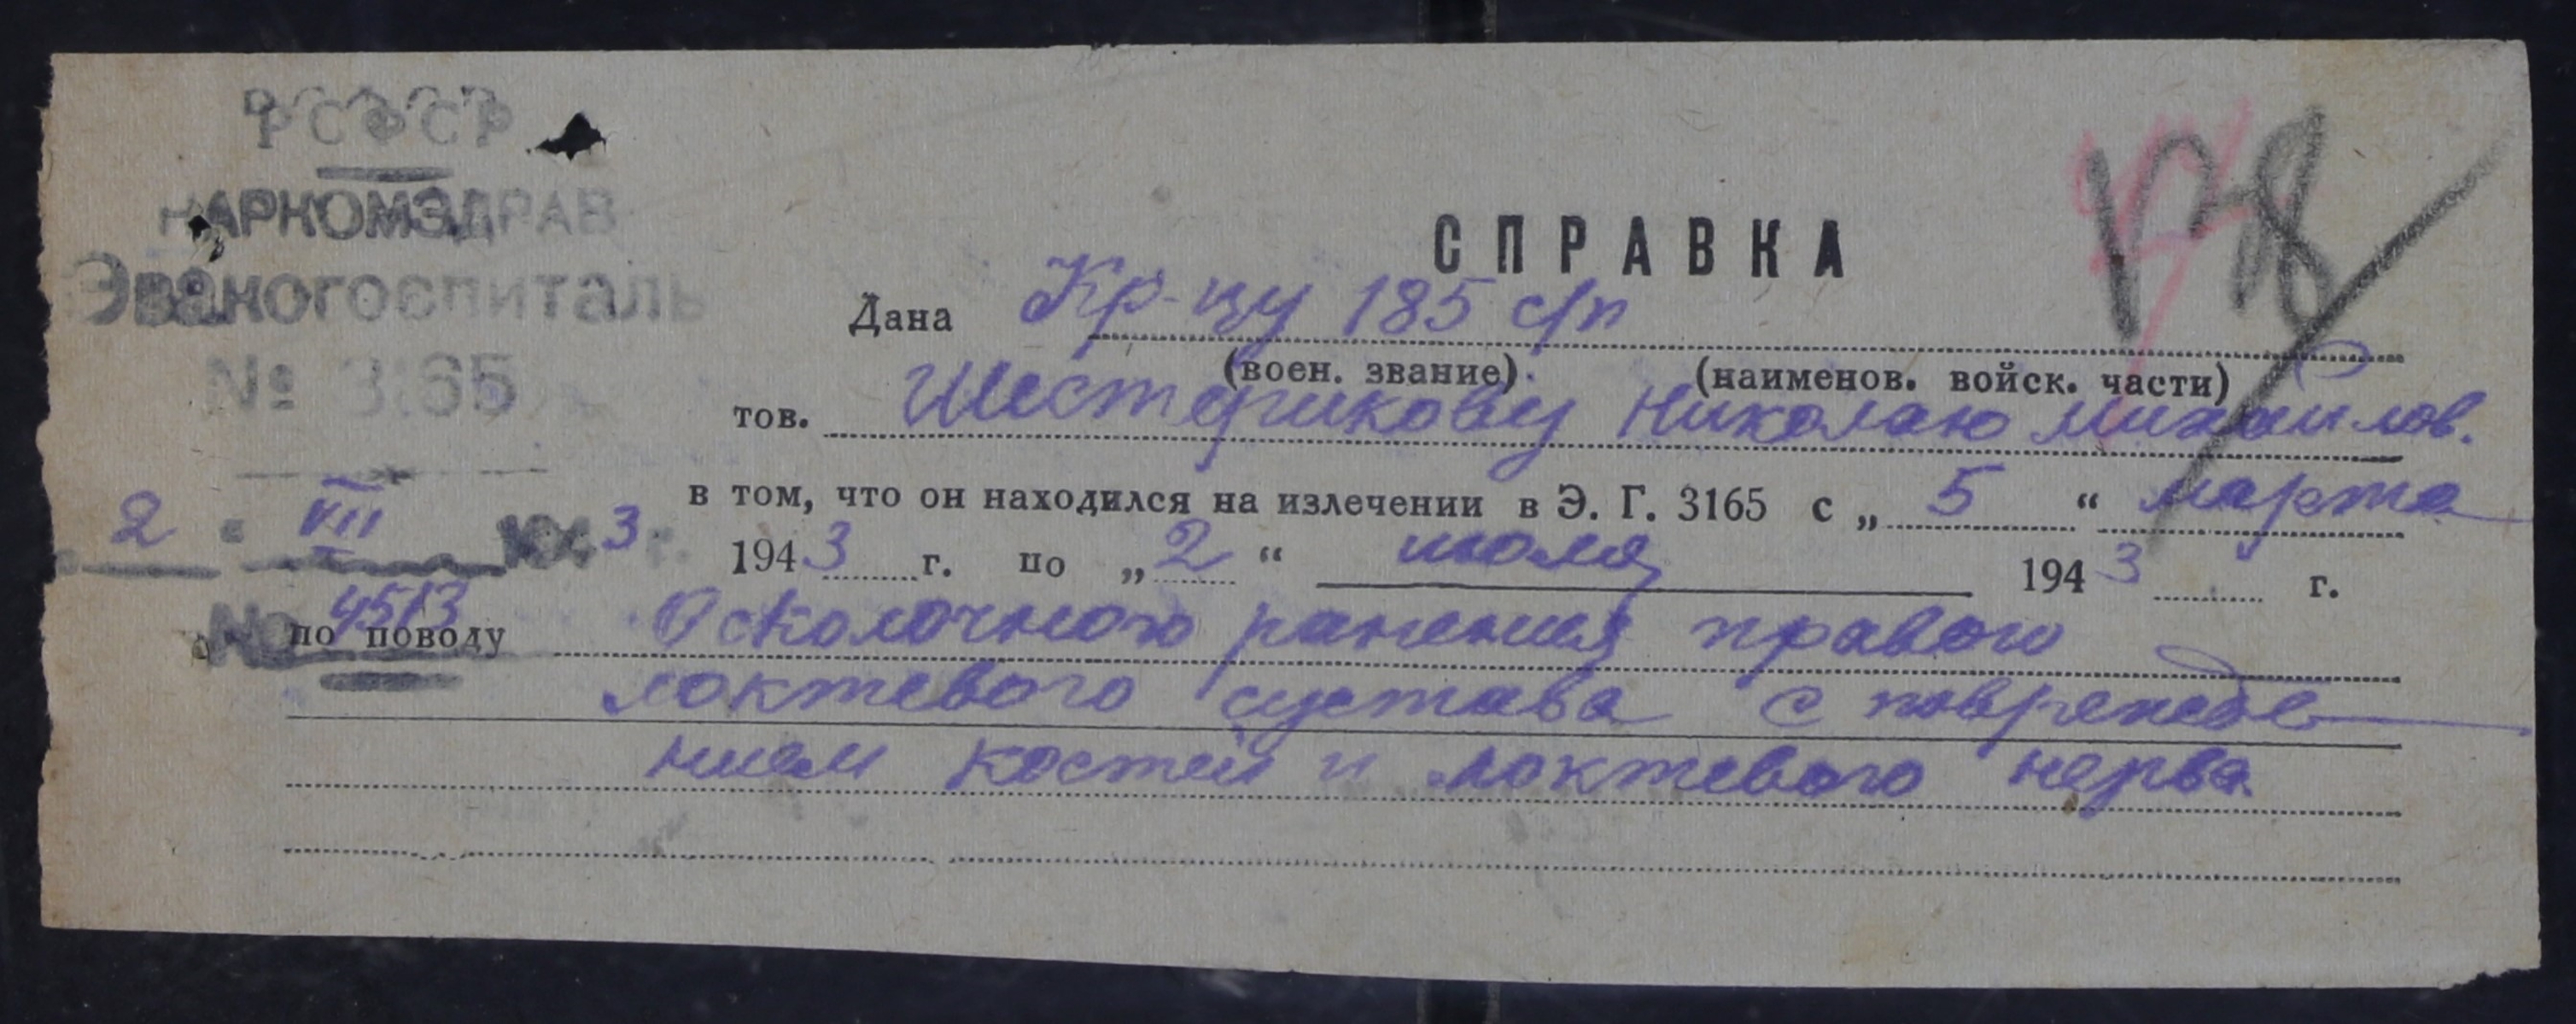 РСФСР
НАРКОМЗДРАВ
Эвакогоспиталь
№ 3165
2 " VII 1943 г.
№ 4513
178
СПРАВКА
Дана Кр-цу 185 с/п
(воен. звание) (наименов. войск. части)
тов. Шестерикову Николаю Михайлов.
в том, что он находился на излечении в Э. Г. 3165 с „ 5 “ марта
1943 г. по „ 2 “ июля 1943 г.
по поводу Осколочного ранения правого
локтевого сустава с поврежде
нием костей и локтевого нерва